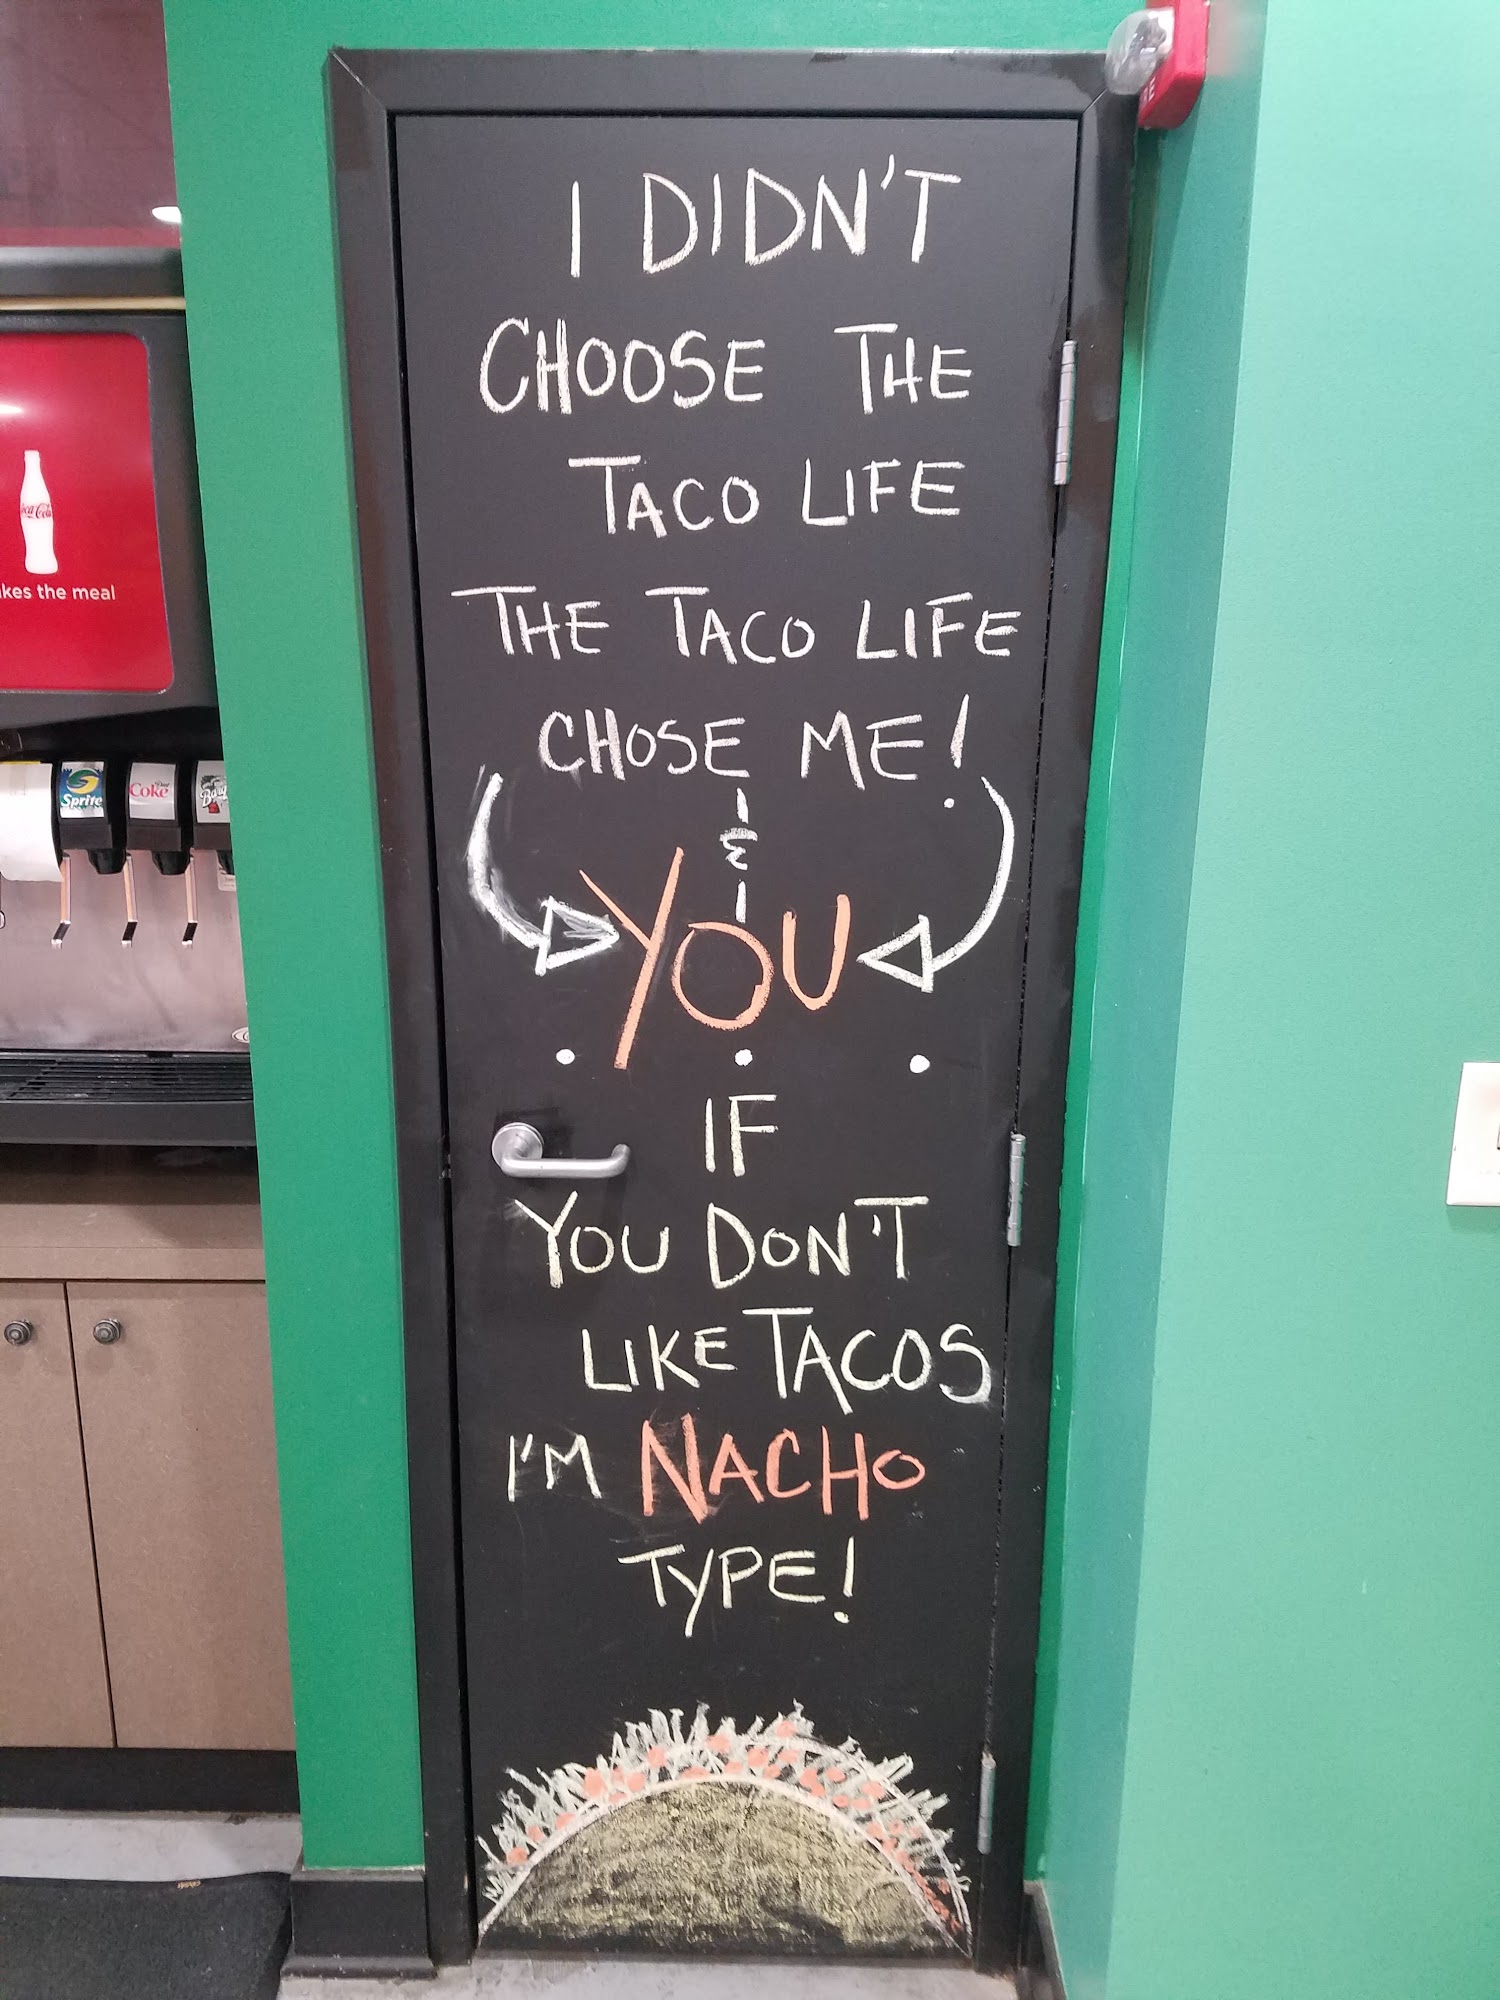 I DIDN'T
CHOOSE THE
TACO LIFE
THE TACO LIFE
CHOSE ME!
&
YOU
IF
YOU DON'T
LIKE TACOS
I'M NACHO
TYPE!
kes the meal
Sprite
Coke